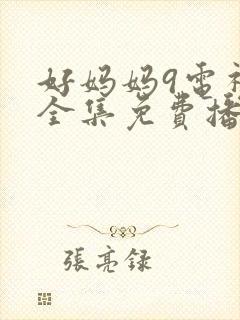 好妈妈9电视
全集免费播
張亮録